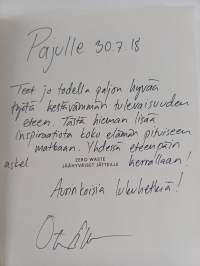 Pajulle 30.7.18
Teet jo todella paljon hyvää
työtä kestävämmän tulevaisuuden
eteen. Tästä hieman lisää
inspiraatiota koko elämän pituiseen
matkaan. Yhdessä eteenpäin
ZERO WASTE
JÄÄHYVÄISET JÄTTEILLE
askel kerrallaan!
Aurinkoisia lukuhetkiä!